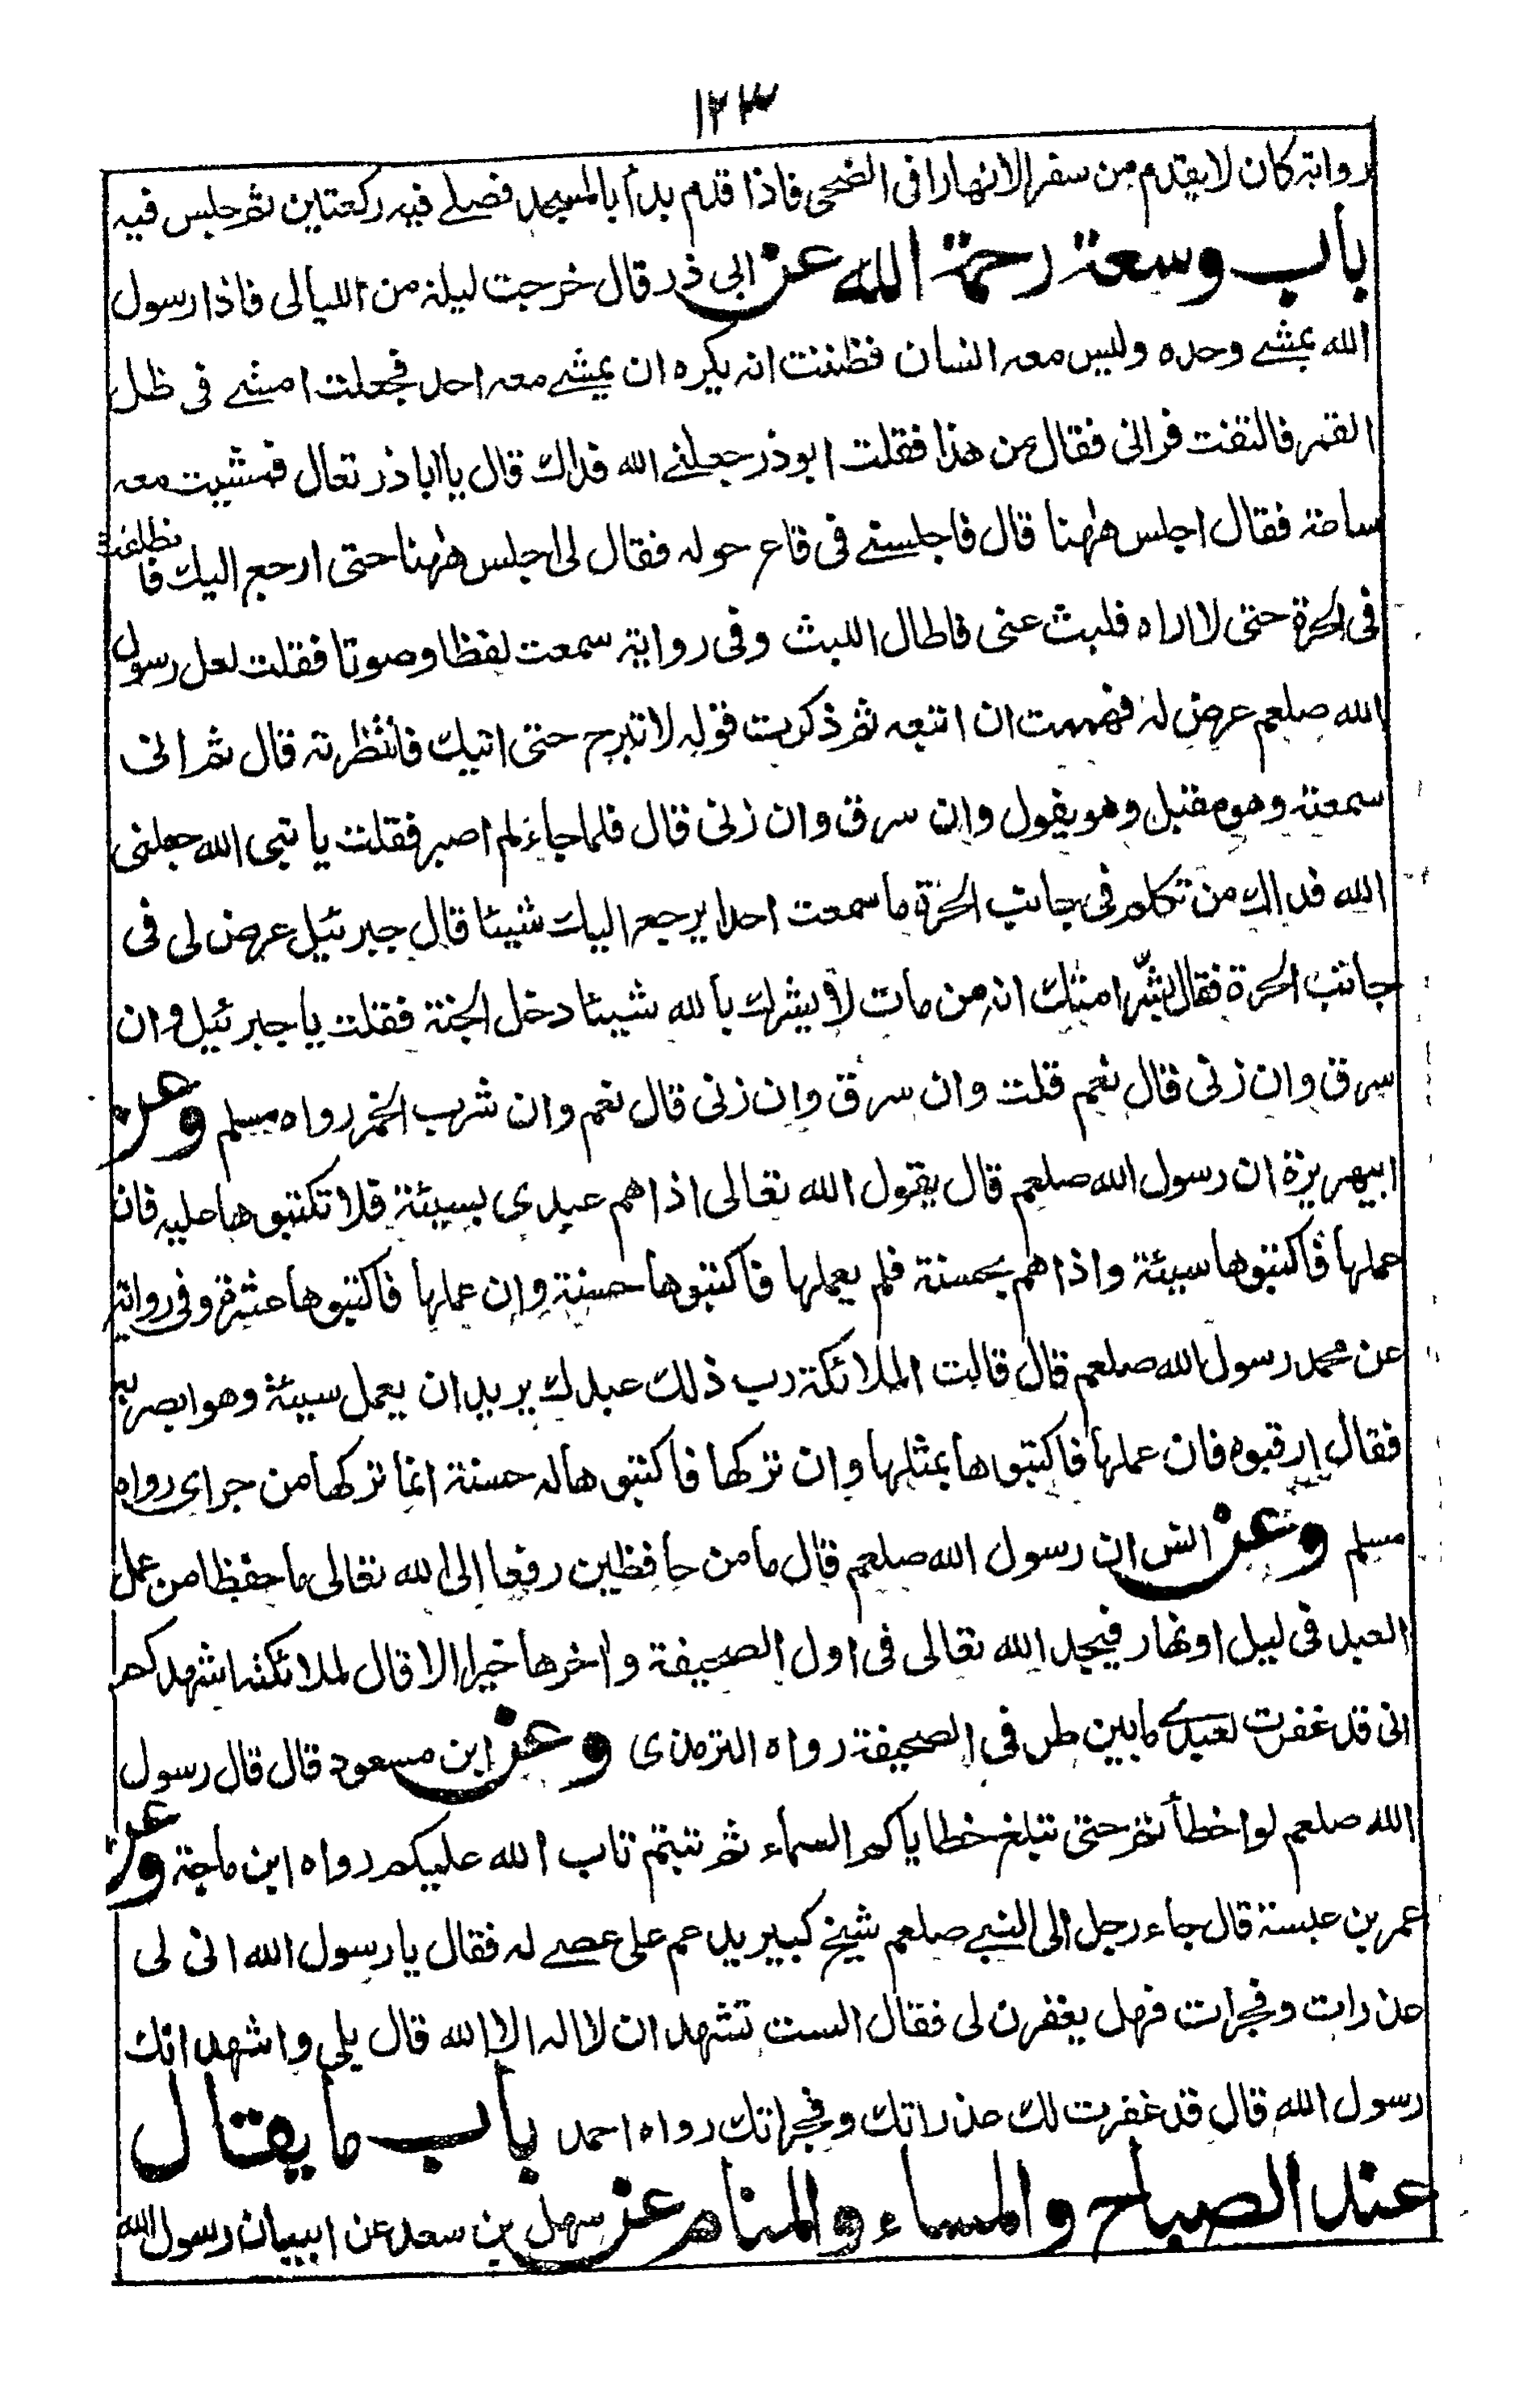 ١٢٣
رواية كان لا يقدم من سفر الا نهارا فى الضحى فاذا قدم بدأ بالمسجد فصلے فيه ركعتين ثم جلس فيه
باب وسعة رحمة الله عن ابى ذر قال خرجت ليلة من الليالى فاذا رسول
الله يمشے وحده وليس معه انسان فظننت انه يكره ان يمشے معه احد فجعلت امشے فى ظل
القمر فالتفت فرانى فقال من هذا فقلت ابوذر جعلنے الله فداك قال يا ابا ذر تعال فمشيت معه
ساعة فقال اجلس ههنا قال فاجلسنے فى قاع حوله فقال لى اجلس ههنا حتى ارجع اليك فانطلق
فى الحرة حتى لا اراه فلبث عنى فاطال اللبث وفى رواية سمعت لفظا وصوتا فقلت لعل رسول
الله صلعم عرض له فهممت ان اتبعه ثم ذكرت قوله لا تبرح حتى اتيك فانتظرته قال ثم انى
سمعته وهو مقبل وهو يقول وان سرق وان زنى قال فلما جاء لم اصبر فقلت يا نبى الله جعلنى
الله فداك من تكلم فى جانب الحرة ما سمعت احدا يرجع اليك شيئا قال جبرئيل عرض لى فى
جانب الحرة فقال بشّر امتك انه من مات لا يشرك بالله شيئا دخل الجنة فقلت يا جبرئيل وان
سرق وان زنى قال نعم قلت وان سرق وان زنى قال نعم وان شرب الخمر رواه مسلم وعن
ابيهريرة ان رسول الله صلعم قال يقول الله تعالى اذا هم عبدى بسيئة فلا تكتبوها عليه فان
عملها فاكتبوها سيئة واذا هم بحسنة فلم يعملها فاكتبوها حسنة وان عملها فاكتبوها عشرة وفى رواية
عن محمد رسول الله صلعم قال قالت الملائكة رب ذلك عبدك يريد ان يعمل سيئة وهو ابصر به
فقال ارقبوه فان عملها فاكتبوها بمثلها وان تركها فاكتبوها له حسنة انما تركها من جراى رواه
مسلم وعن انس ان رسول الله صلعم قال ما من حافظين رفعا الى الله تعالى ما حفظا من عمل
العبد فى ليل او نهار فيجد الله تعالى فى اول الصحيفة واخرها خيرا الا قال لملائكته اشهدكم
انى قد غفرت لعبدے ما بين طرفى الصحيفة رواه الترمذى وعن ابن مسعود قال قال رسول
الله صلعم لو اخطأتم حتى تبلغ خطاياكم السماء ثم تبتم تاب الله عليكم رواه ابن ماجة وعن
عمر بن عبسة قال جاء رجل الى النبے صلعم شيخ كبير يدعم على عصے له فقال يا رسول الله انى لى
غدرات وفجرات فهل يغفرن لى فقال الست تشهد ان لا اله الا الله قال بلى واشهد انك
رسول الله قال قد غفرت لك غدراتك وفجراتك رواه احمد باب ما يقال
عند الصباح والمساء والمنام عن سهل بن سعد عن ابيه ان رسول الله